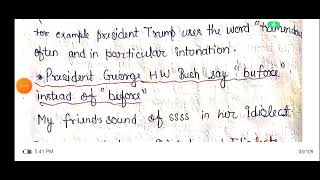 for example president Trump uses the word "tremendous
often and in particular intonation.
* President Guorge HW Bush say "bufore"
instead of "before"
My friends sound of ssss in her idiolect
5:41 PM
33/109